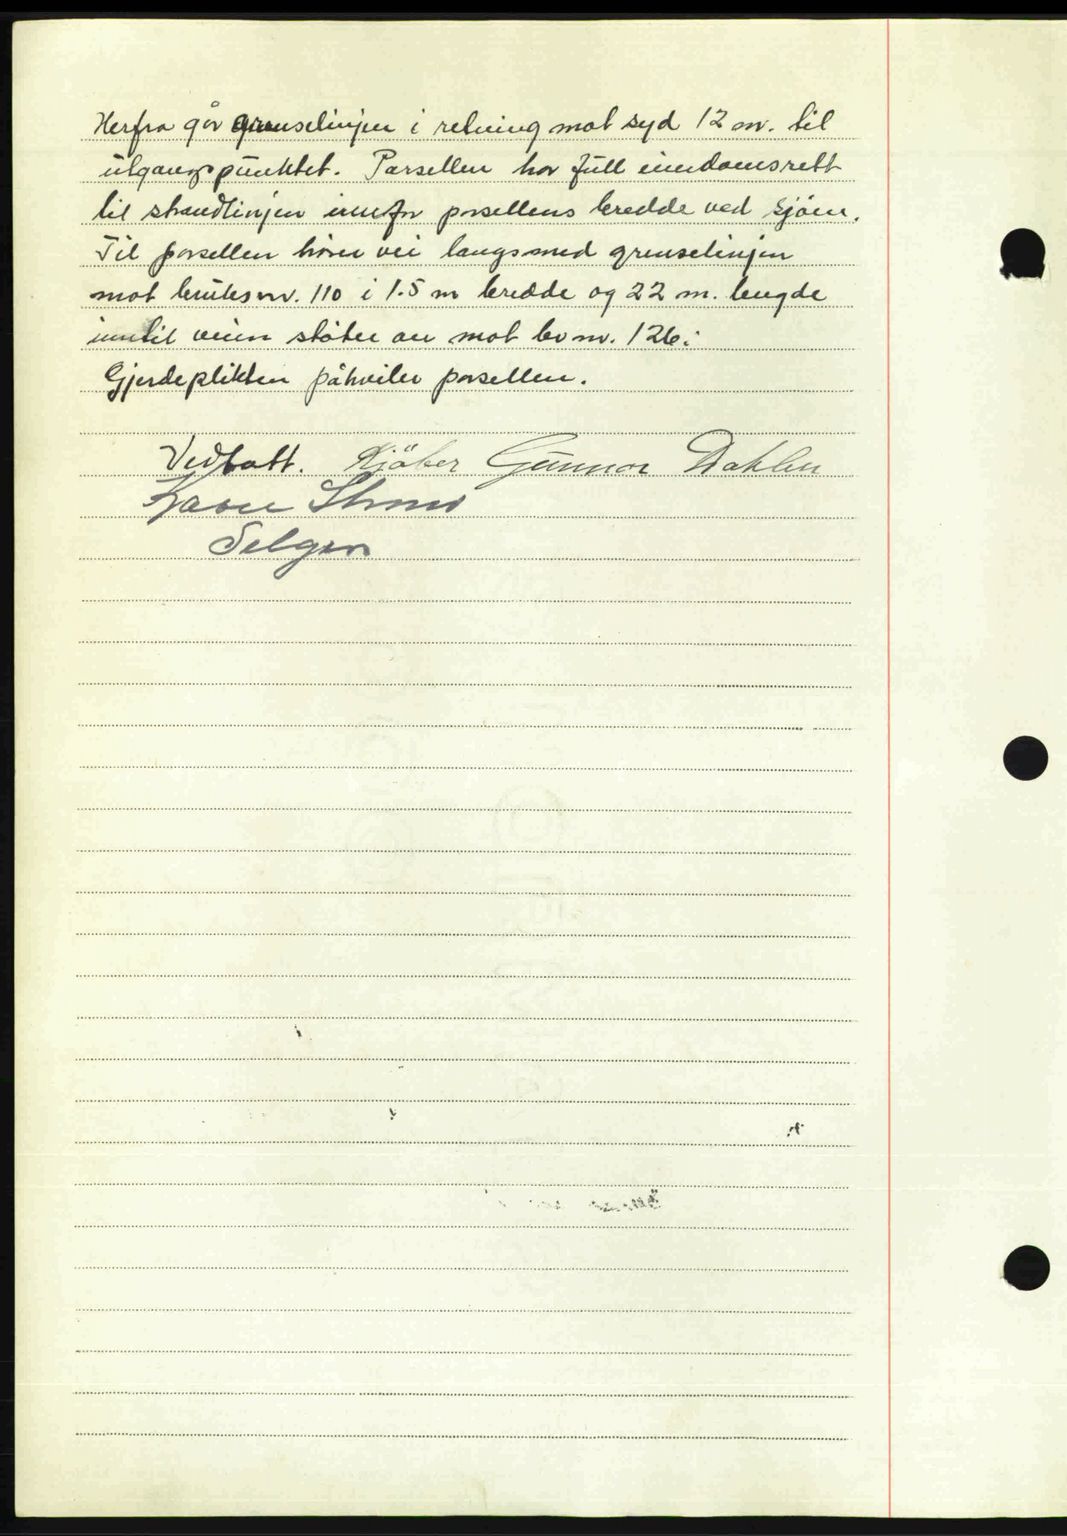 Herfra går grenselinjen i retning mot syd 12 m. til
utgangspunktet. Parsellen har full eiendomsrett
til strandlinjen innefor parsellens bredde ved sjöen.
Til parsellen hörer vei langsmed grenselinjen
mot bruksnr. 110 i 1.5 m bredde og 22 m. lengde
inntil veien støter an mot br nr. 126.
Gjerdeplikten påhviler parsellen.
Vedtatt. Kjöber Gunnar Dahlen
Strand
Selger